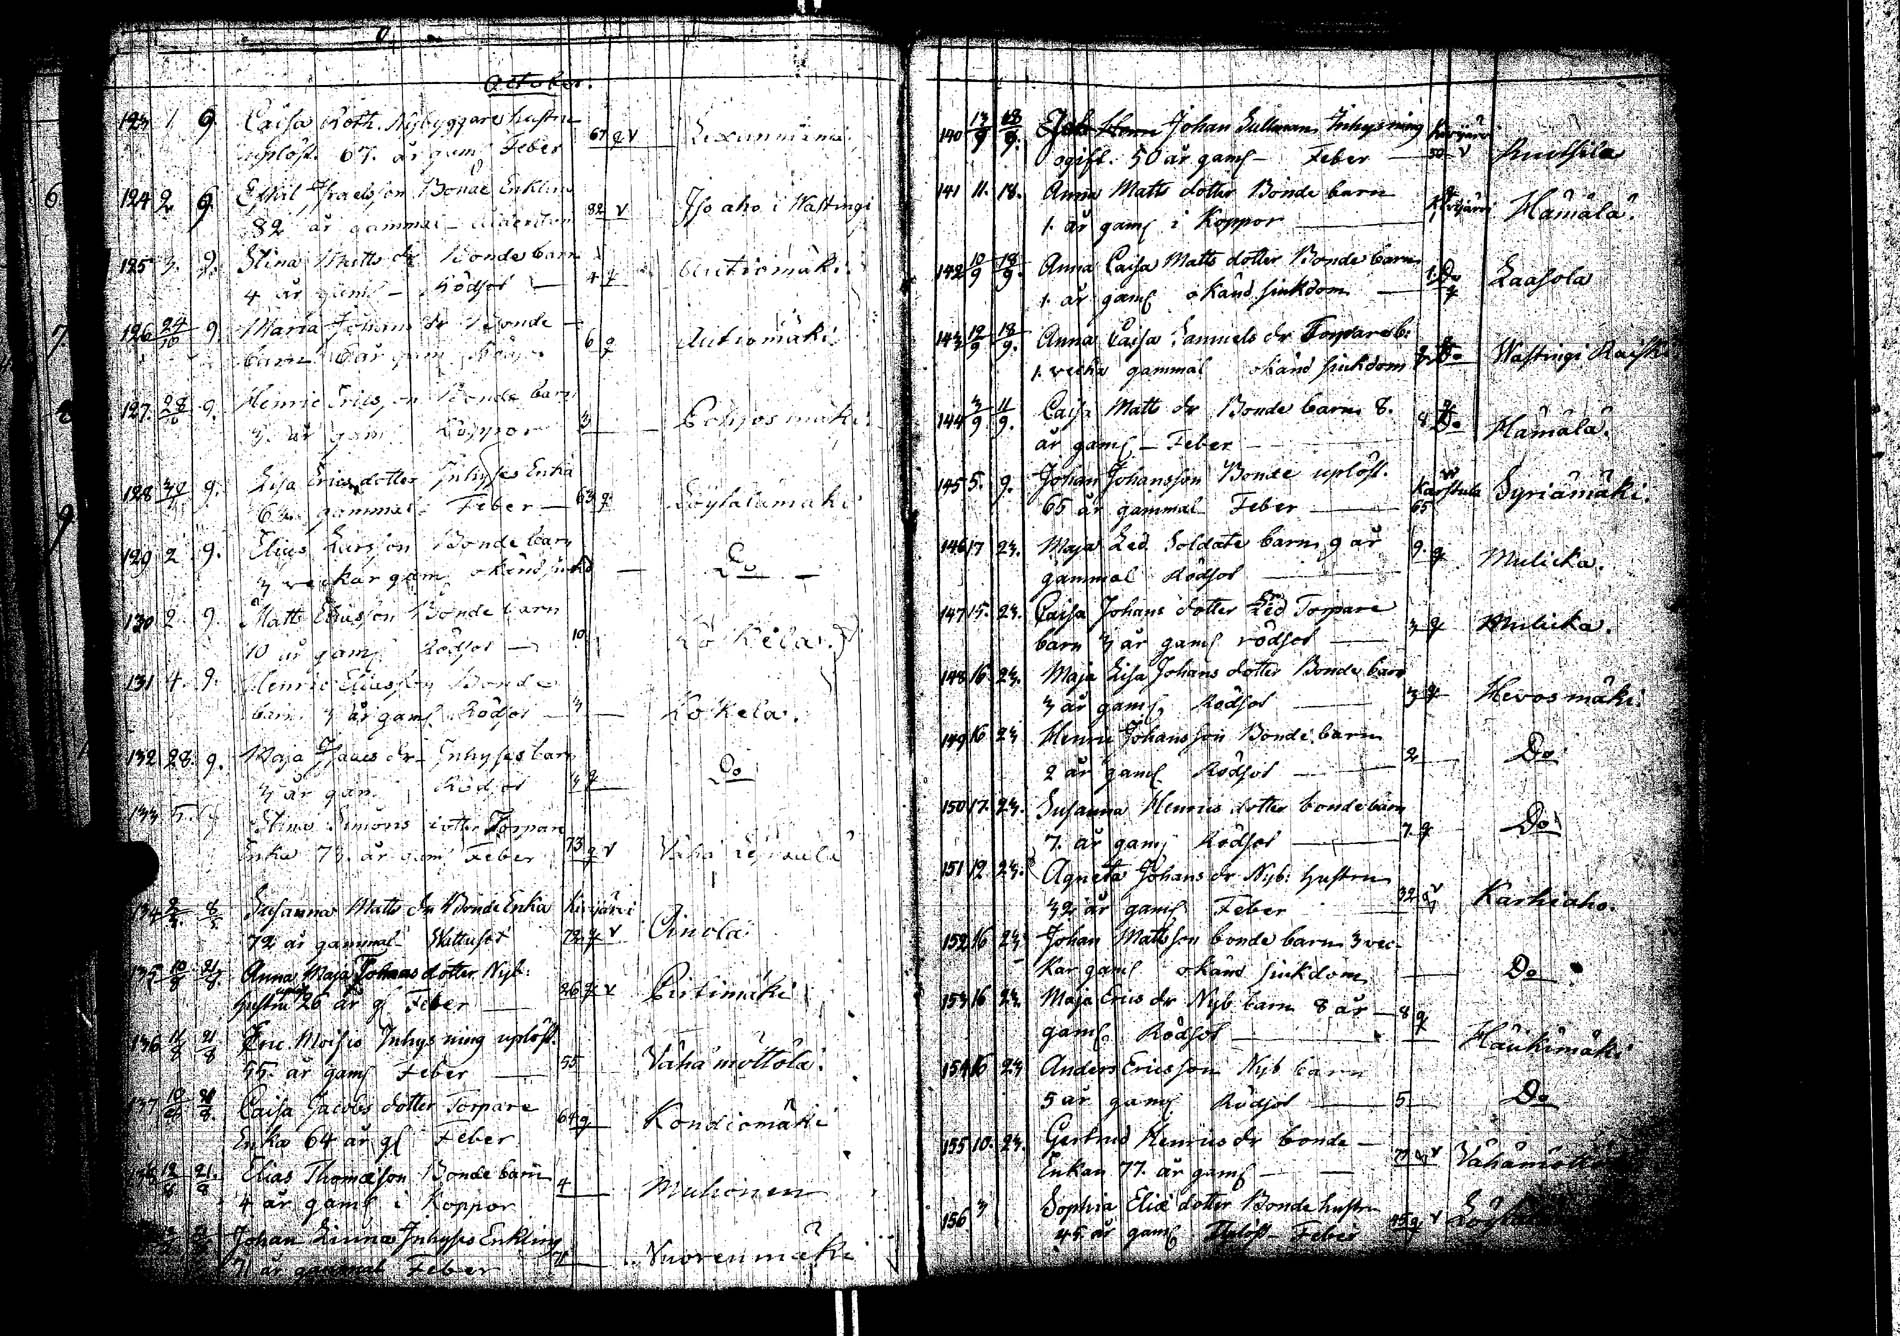 October.
123 1 9. Caisa Roth. Nybyggare hustru
uplöst. 67. år gaml Feber 67 q v
124 2 9. Israelsson Bonde Enkling
82 år gammal - ålderdom 82 v Iso aho i Wastingi
125 3. 9. Stina Matts dr Bonde barn
4 år gaml - Rödsot 4 q Autiomäki.
126 24/10 9 Maria Johans dr Bonde -
barn 6 år gam Rödsot 6 q Autiomäki
127. 28/10 9. Henric Ericsson Bonde barn
3. år gam. Koppor 3 Pohjosmäki.
128 30/9 9. Lisa Ericsdotter Inhyses Enka
63. gammal. Feber - 63 q Löytälämäki
129 2 9. Elias Larsson Bonde barn
3 veckar gam okänd sinkd - Do -
130 2. 9. Matts Eliasson Bonde barn
10 år gaml Rödsot - 10 Kokkela.
131 4. 9. Henric Eliasson Bonde
barn 3 år gaml Rödsot - 3 Kokela.
132 28. 9. Maja Isaacs dr Inhyses barn
3 år gam. Rödsot 3 q Do
133 5. 9 Stina Simons dotter Torpare
Enka 73. år gaml Feber 73 q v Vähä
134 8/8 Susanna Matts dr Bonde Enka Kivijärvi
72 år gammal Wattusot 72 q v Oinola
135 10/8 21/8 Anna Maja Johans dotter Nyb:
hustru 26 år gl Feber 26 q v Pirtimäki
136 11/8 21/8 Eric Moisio Inhysning uplöst.
55. år gaml Feber 55 Vähämöttölä.
137 10/8 21/8. Caisa Jacobs dotter Torpare
Enka 64 år gl Feber 64 q Kondiomäki
138 12/8 21/8 Elias Thomasson Bonde barn
4 år gaml i Koppor 4 Muhonen
Johan Linna Inhyses Enkling
71 år gammal Feber 71 Nuorenmäki
140 13/9 18/9. Johan Sullman Inhysning Kivijärvi
ogift. 50 år gaml - Feber - 50 v Ruotsila
141 11. 18. Anna Matts dotter Bonde barn
1. år gaml i Koppor Kivijärvi Hämälä.
142 10/9 18/9. Anna Caisa Matts dotter Bonde barn
1. år gaml okänd sinkdom - 1. Do q Laasola
143 12/9 18/9. Anna Caisa Samuels dr Torpare b:
1. vecka gammal okänd sinkdom Do Wastingi Raiski
144 3/9 11/9. Caisa Matts dr Bonde barn 8.
år gaml - Feber - 8 Do Hämälä.
145 5. 9. Johan Johansson Bonde uplöst.
65 år gammal Feber - Karstula 65 Syriämäki.
146 17 23. Maja Led Soldate barn 9 år 9. q
gammal Rödsot - Mulicka.
147 15. 23. Caisa Johans dotter Led Torpare
barn 3 år gaml rödsot - 3 q Mulicka.
148 16. 23. Maja Lisa Johans dotter Bonde barn
3 år gaml, Rödsot - 3 q Hevosmäki.
149 16 23 Henric Johansson Bonde barn
2 år gaml Rödsot - 2 Do
150 17. 23. Susanna Henrics dotter bonde barn
7. år gaml Rödsot - 7. q Do
151 12 23. Agneta Johans dr Nyb: hustru
32 år gaml Feber - 32 q v Karhiaho.
152 16 23 Johan Mattsson bonde barn 3 vec-
kar gaml okänd sinkdom - Do
153 16 23. Maja Erics dr Nyb barn 8 år - 8 q
gaml. Rödsot - Häukimäki
154 16 23 Anders Ericsson Nyb barn
5 år gaml Rödsot - 5 Do
155 10. 23. Gertrud Henrics dr bonde -
Enkan 77. år gaml - 77 q v
156 3 Sophia Eliæ dotter Bonde hustru
45. år gaml Uplöst - Feber 45 q v